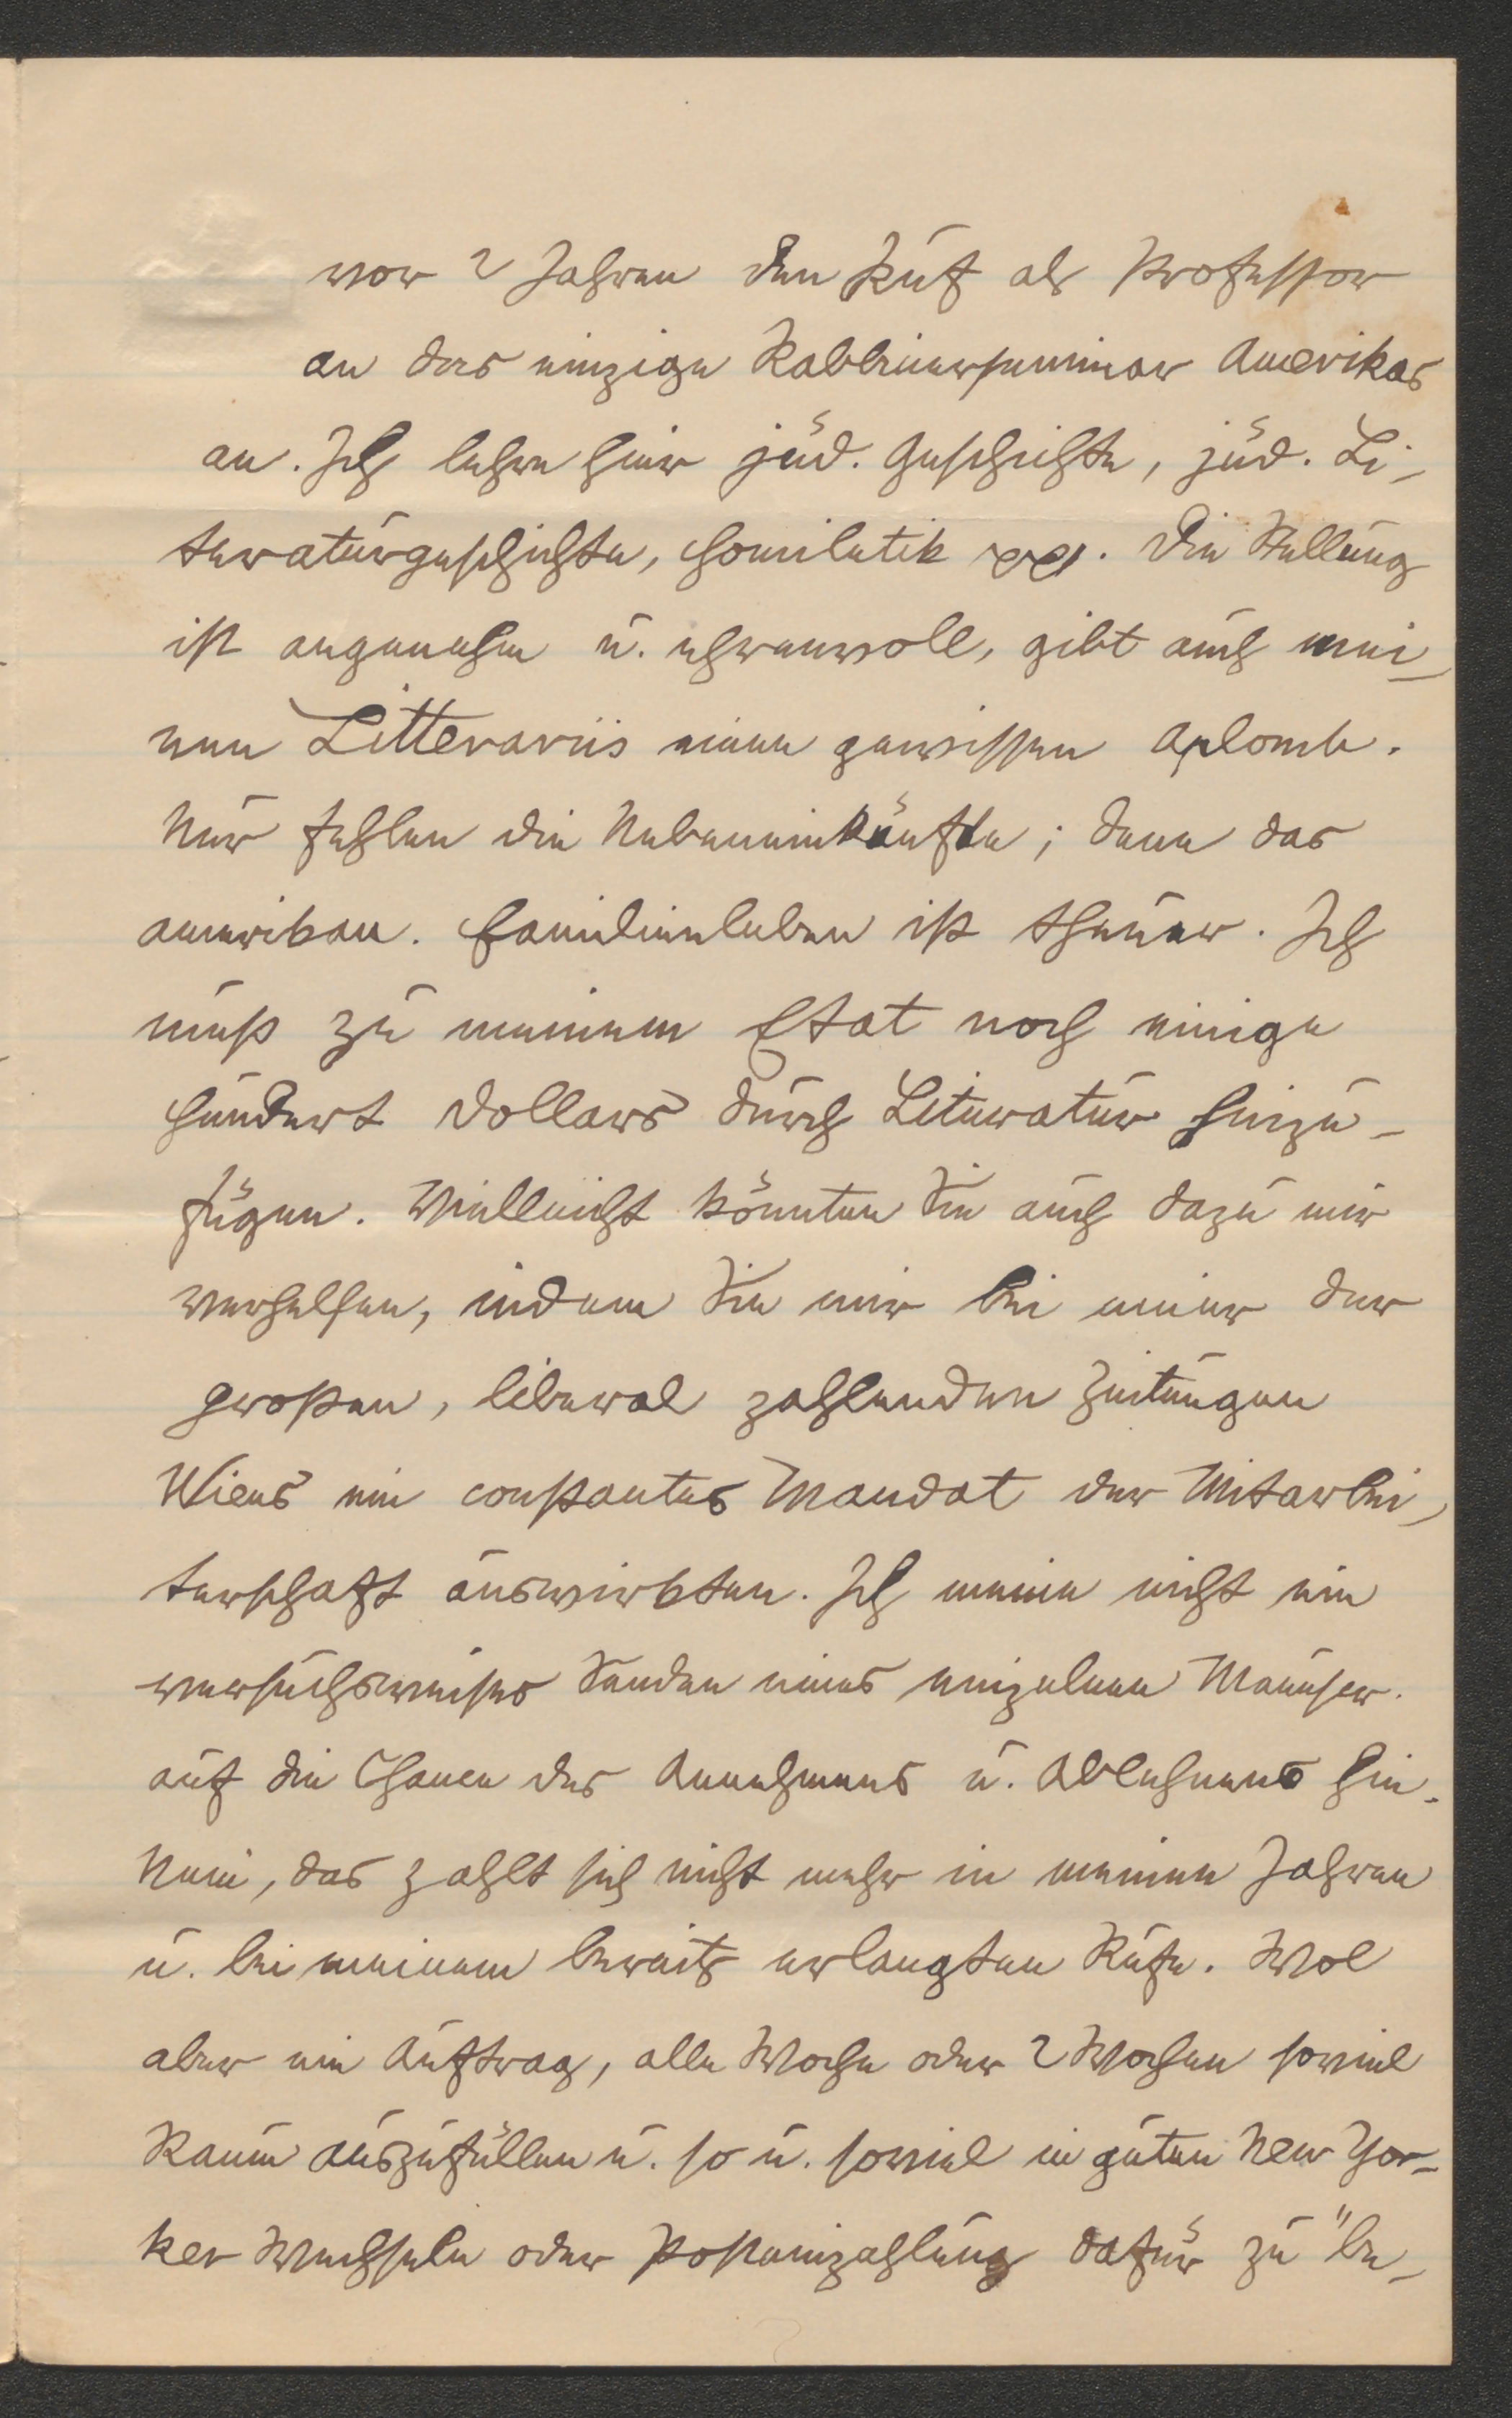 vor 2 Jahren den Ruf als Professor
an das einzige Rabbinerseminar Amerikas
an. Ich lehre hier jüd. Geschichte, jüd. Li-
teraturgeschichte, Homiletik etc. Die Stellung
ist angenehm u. ehrenvoll, gibt auch mei-
nen Litterariis einen gewissen Aplomb.
Nur fehlen die Nebeneinkünfte; denn das
amerikan. Familienleben ist theuer. Ich
muß zu meinem Etat noch einige
hundert Dollars durch Literatur hinzu-
fügen. Vielleicht könnten Sie auch dazu mir
verhelfen, indem Sie mir bei einer der
großen, liberal zahlenden Zeitungen
Wiens ein constantes Mandat der Mitarbei-
terschaft auswirkten. Ich meine nicht ein
versuchsweises Senden eines einzelnen Manuscr.
auf die Chance des Annehmens u. Ablehnens hin.
Nein, das zahlt sich nicht mehr in meinen Jahren
u. bei meinem bereits erlangten Rufe. Wol
aber ein Auftrag, alle Woche oder 2 Wochen soviel
Raum auszufüllen u. so u. soviel in guten New Yor-
ker Wechseln oder Posteinzahlung dafür zu "be-